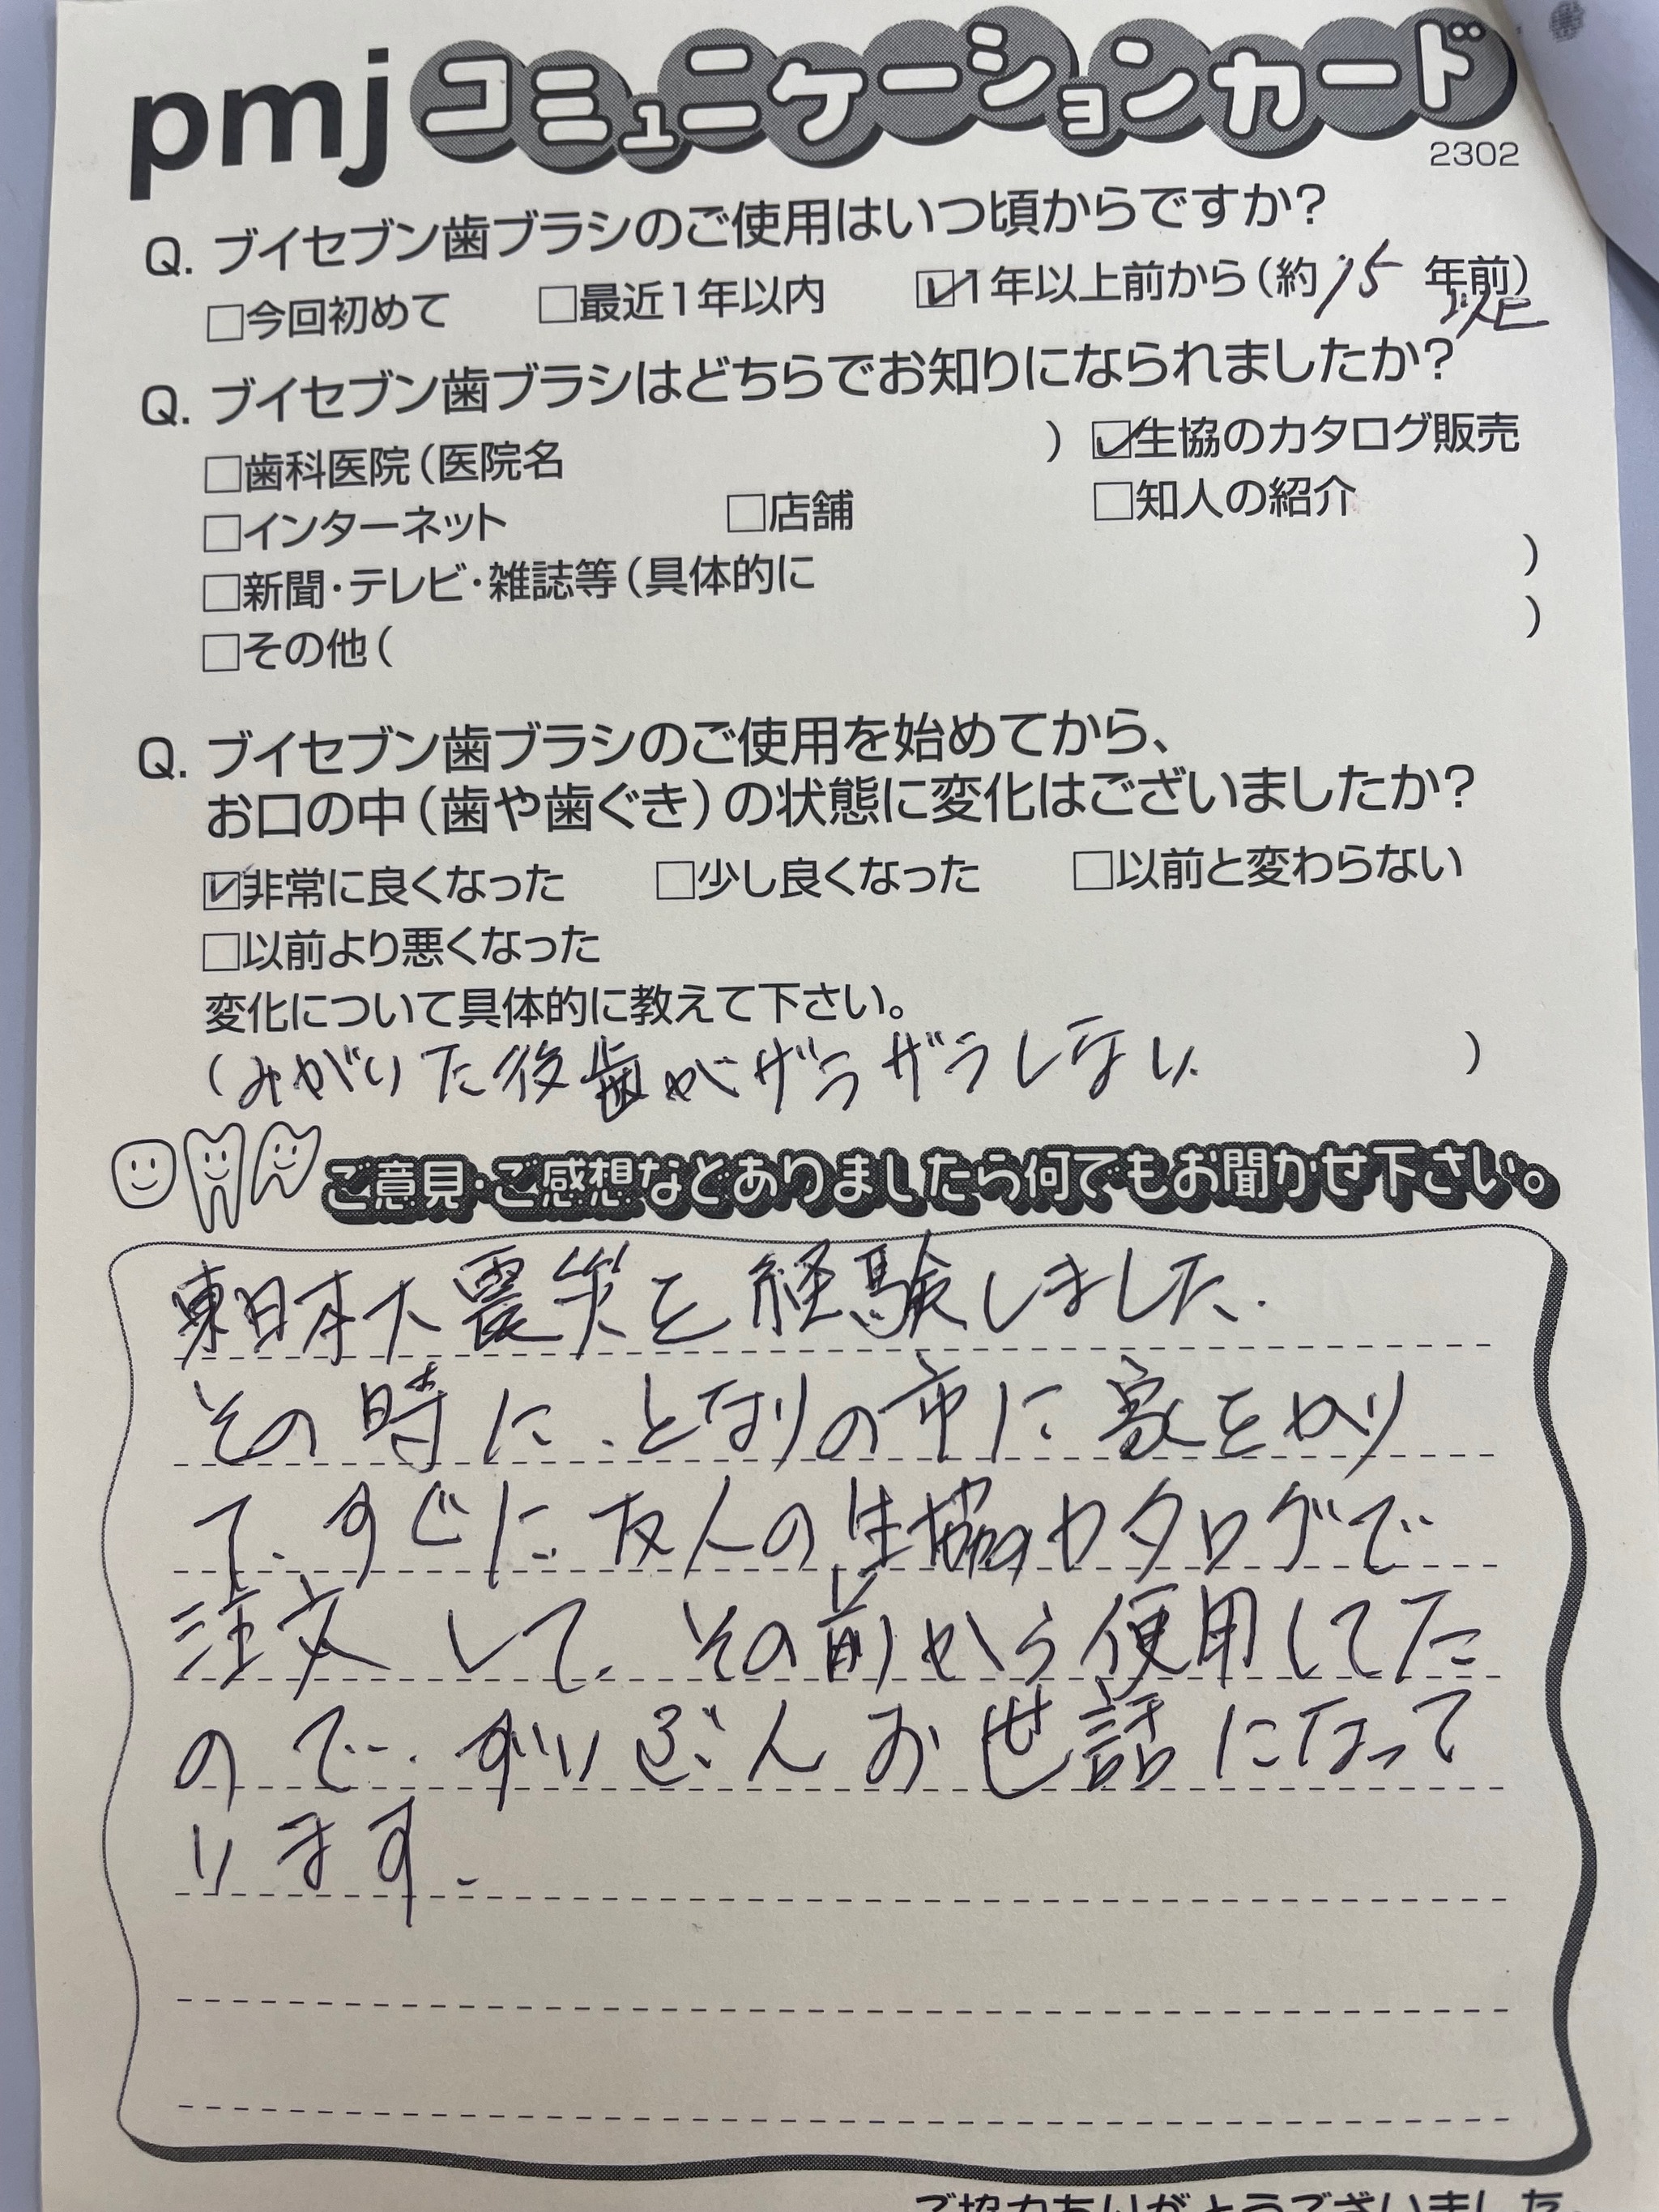 pmj コミュニケーションカード
2302
Q. ブイセブン歯ブラシのご使用はいつ頃からですか?
□今回初めて □最近1年以内 ☑1年以上前から(約15年前)
以上
Q. ブイセブン歯ブラシはどちらでお知りになられましたか?
□歯科医院(医院名 ) ☑生協のカタログ販売
□インターネット □店舗 □知人の紹介
□新聞・テレビ・雑誌等(具体的に )
□その他( )
Q. ブイセブン歯ブラシのご使用を始めてから、
お口の中(歯や歯ぐき)の状態に変化はございましたか?
☑非常に良くなった □少し良くなった □以前と変わらない
□以前より悪くなった
変化について具体的に教えて下さい。
(みがいた後歯がザラザラしない )
ご意見・ご感想などありましたら何でもお聞かせ下さい。
東日本大震災を経験しました.
その時に、となりの市に家をかり
て、すぐに友人の生協カタログで
注文して、その前から使用してた
ので、ずいぶんお世話になって
います.
ご協力ありがとうございました。